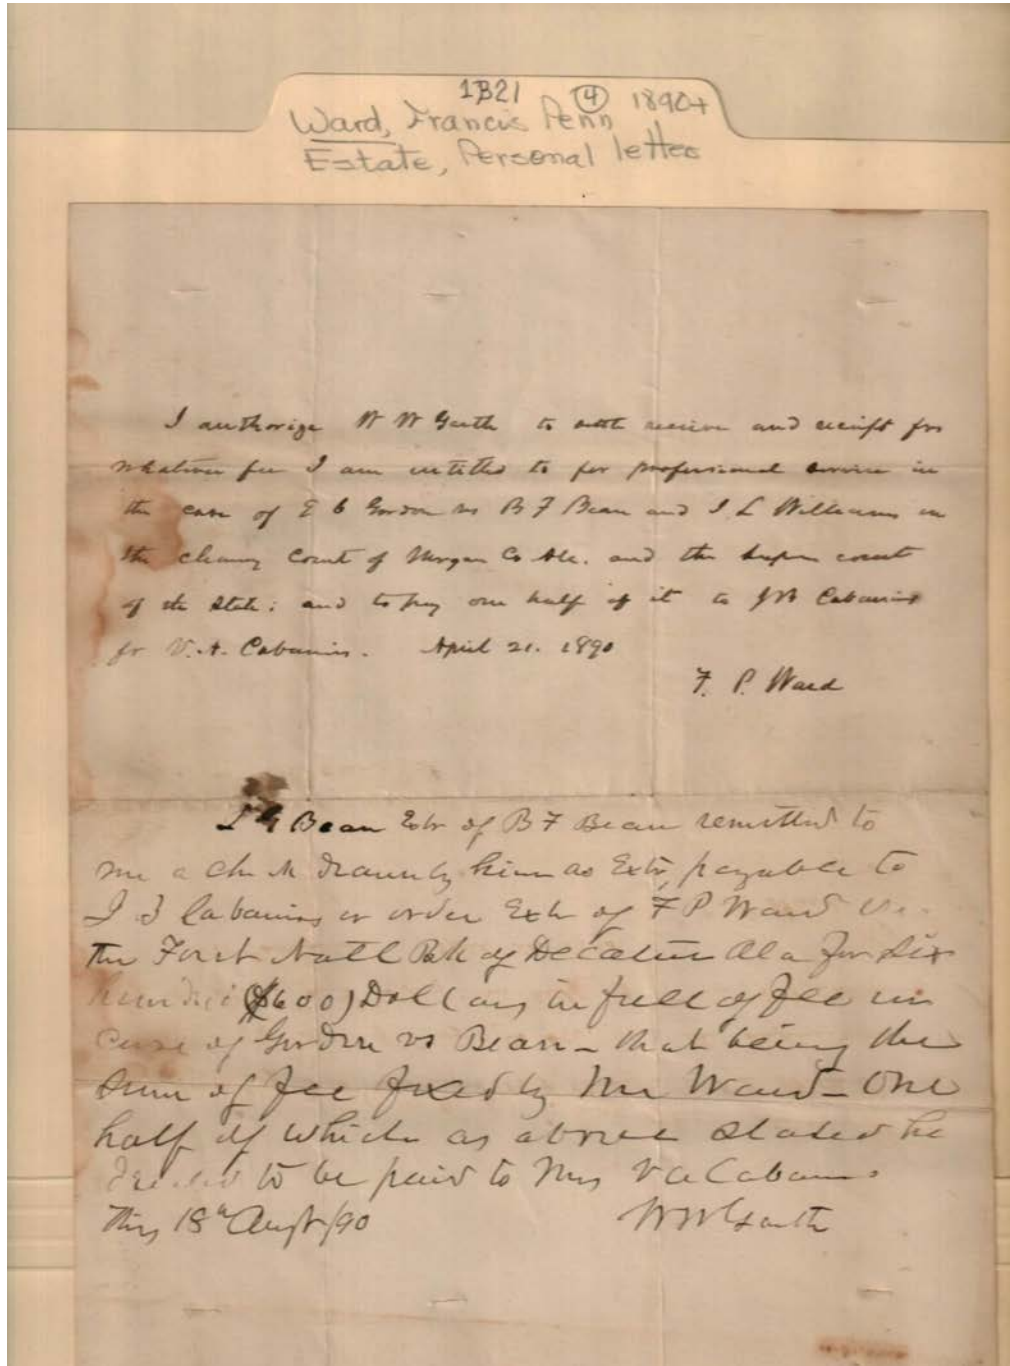 1B21 (4) 1890+
Ward, Francis Penn
Estate, Personal letter
I authorize W W Garth to receive and receipt for
whatever fee I am entitled to for professional service in
the case of E C Gordon vs B F Bean and J L Williams in
the chancy Court of Morgan Co Ala. and the Supm court
of the State; and to pay one half of it to J B Cabaniss
for V. A. Cabaniss. April 21. 1890
F. P. Ward
L G Bean Extr of B F Bean remitted to
me a check drawn by him as Extr, payable to
J B Cabaniss or order Extr of F P Ward
the First Natl Bk of Decatur Ala for Six
hundred ($600) Dollars in full of fee in
case of Gordon vs Bean - that being the
sum of fee fixed by Mr Ward - One
half of which as above stated he
to be paid to Mrs V A Cabaniss
This 18th Augt/90 W W Garth